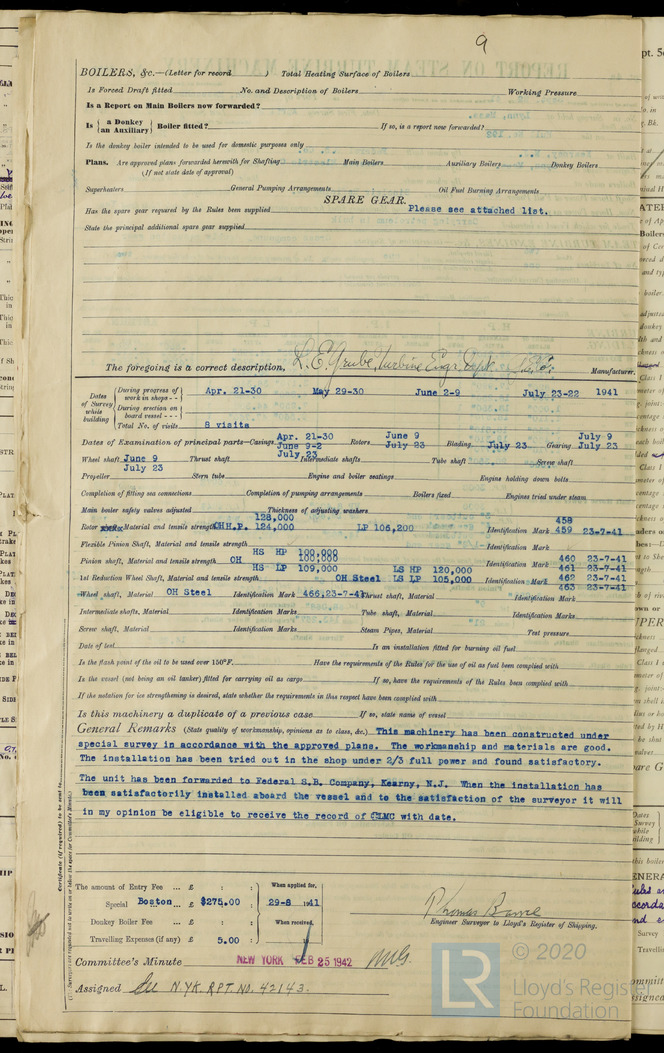 9
BOILERS, &c.—(Letter for record ) Total Heating Surface of Boilers
Is Forced Draft fitted No. and Description of Boilers Working Pressure
Is a Report on Main Boilers now forwarded?
Is { a Donkey / an Auxiliary } Boiler fitted? If so, is a report now forwarded?
Is the donkey boiler intended to be used for domestic purposes only
Plans. Are approved plans forwarded herewith for Shafting Main Boilers Auxiliary Boilers Donkey Boilers
(If not state date of approval)
Superheaters General Pumping Arrangements Oil Fuel Burning Arrangements
SPARE GEAR.
Has the spare gear required by the Rules been supplied Please see attached list.
State the principal additional spare gear supplied
The foregoing is a correct description, L. E. Grube, Turbine Engr. Dept. Manufacturer.
Dates of Survey while building
During progress of work in shops - - Apr. 21-30 May 29-30 June 2-9 July 23-22 1941
During erection on board vessel - - -
Total No. of visits 8 visits
Dates of Examination of principal parts—Casings Apr. 21-30 June 9-2 July 23 Rotors June 9 July 23 Blading July 23 Gearing July 9 July 23
Wheel shaft June 9 July 23 Thrust shaft Intermediate shafts Tube shaft Screw shaft
Propeller Stern tube Engine and boiler seatings Engine holding down bolts
Completion of fitting sea connections Completion of pumping arrangements Boilers fixed Engines tried under steam
Main boiler safety valves adjusted Thickness of adjusting washers
Rotor Material and tensile strength OH H.P. 128,000 124,000 LP 106,200 Identification Mark 458 459 23-7-41
Flexible Pinion Shaft, Material and tensile strength Identification Mark
Pinion shaft, Material and tensile strength OH HS HP 100,000 100,000 Identification Mark 460 23-7-41
HS LP 109,000 LS HP 120,000 461 23-7-41
1st Reduction Wheel Shaft, Material and tensile strength OH Steel LS LP 105,000 Identification Mark 462 23-7-41
463 23-7-41
Wheel shaft, Material OH Steel Identification Mark 466,23-7-41 Thrust shaft, Material Identification Mark
Intermediate shafts, Material Identification Marks Tube shaft, Material Identification Mark
Screw shaft, Material Identification Marks Steam Pipes, Material Test pressure
Date of test Is an installation fitted for burning oil fuel
Is the flash point of the oil to be used over 150°F. Have the requirements of the Rules for the use of oil as fuel been complied with
Is the vessel (not being an oil tanker) fitted for carrying oil as cargo If so, have the requirements of the Rules been complied with
If the notation for ice strengthening is desired, state whether the requirements in this respect have been complied with
Is this machinery a duplicate of a previous case If so, state name of vessel
General Remarks (State quality of workmanship, opinions as to class, &c.) This machinery has been constructed under
special survey in accordance with the approved plans. The workmanship and materials are good.
The installation has been tried out in the shop under 2/3 full power and found satisfactory.
The unit has been forwarded to Federal S.B. Company, Kearny, N.J. When the installation has
been satisfactorily installed aboard the vessel and to the satisfaction of the surveyor it will
in my opinion be eligible to receive the record of LMC with date.
Certificate (if required) to be sent to
The amount of Entry Fee ... £ : : When applied for,
Special Boston ... £ $275.00 : 29-8 1941
Donkey Boiler Fee ... £ : : When received,
Travelling Expenses (if any) £ 5.00 :
Engineer Surveyor to Lloyd's Register of Shipping.
Committee's Minute NEW YORK FEB 25 1942
Assigned See N.Y.K. RPT. NO. 42143.
© 2020
LR Lloyd's Register
Foundation